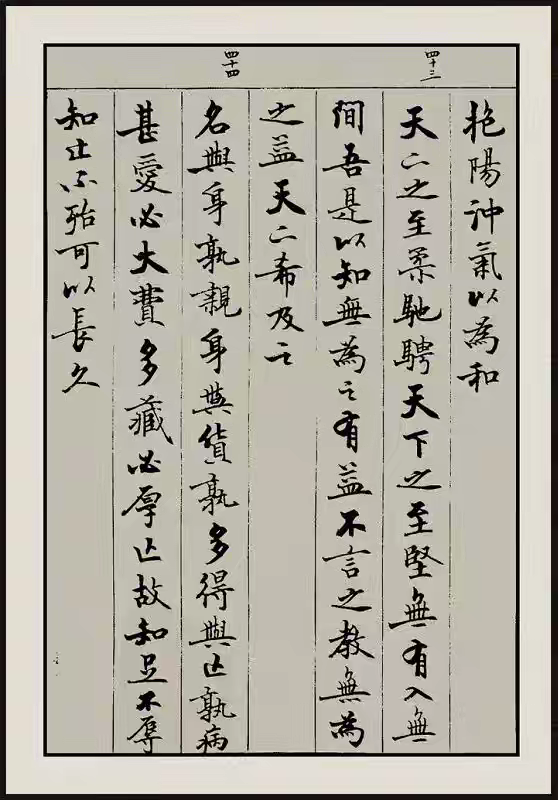 抱陽沖氣以為和
四十三
天下之至柔馳騁天下之至堅無有入無
間吾是以知無為之有益不言之教無為
之益天下希及之
四十四
名與身孰親身與貨孰多得與亡孰病
甚愛必大費多藏必厚亡故知足不辱
知止不殆可以長久